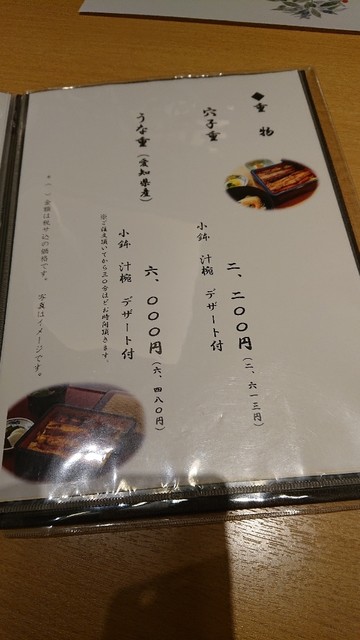 ◆重物
穴子重
二、二〇〇円（二、六一三円）
小鉢 汁椀 デザート付
うな重（愛知県産）
六、〇〇〇円（六、四八〇円）
小鉢 汁椀 デザート付
※ご注文頂いてから三〇分ほどお時間頂きます。
金額は税サ込の価格です。 写真はイメージです。